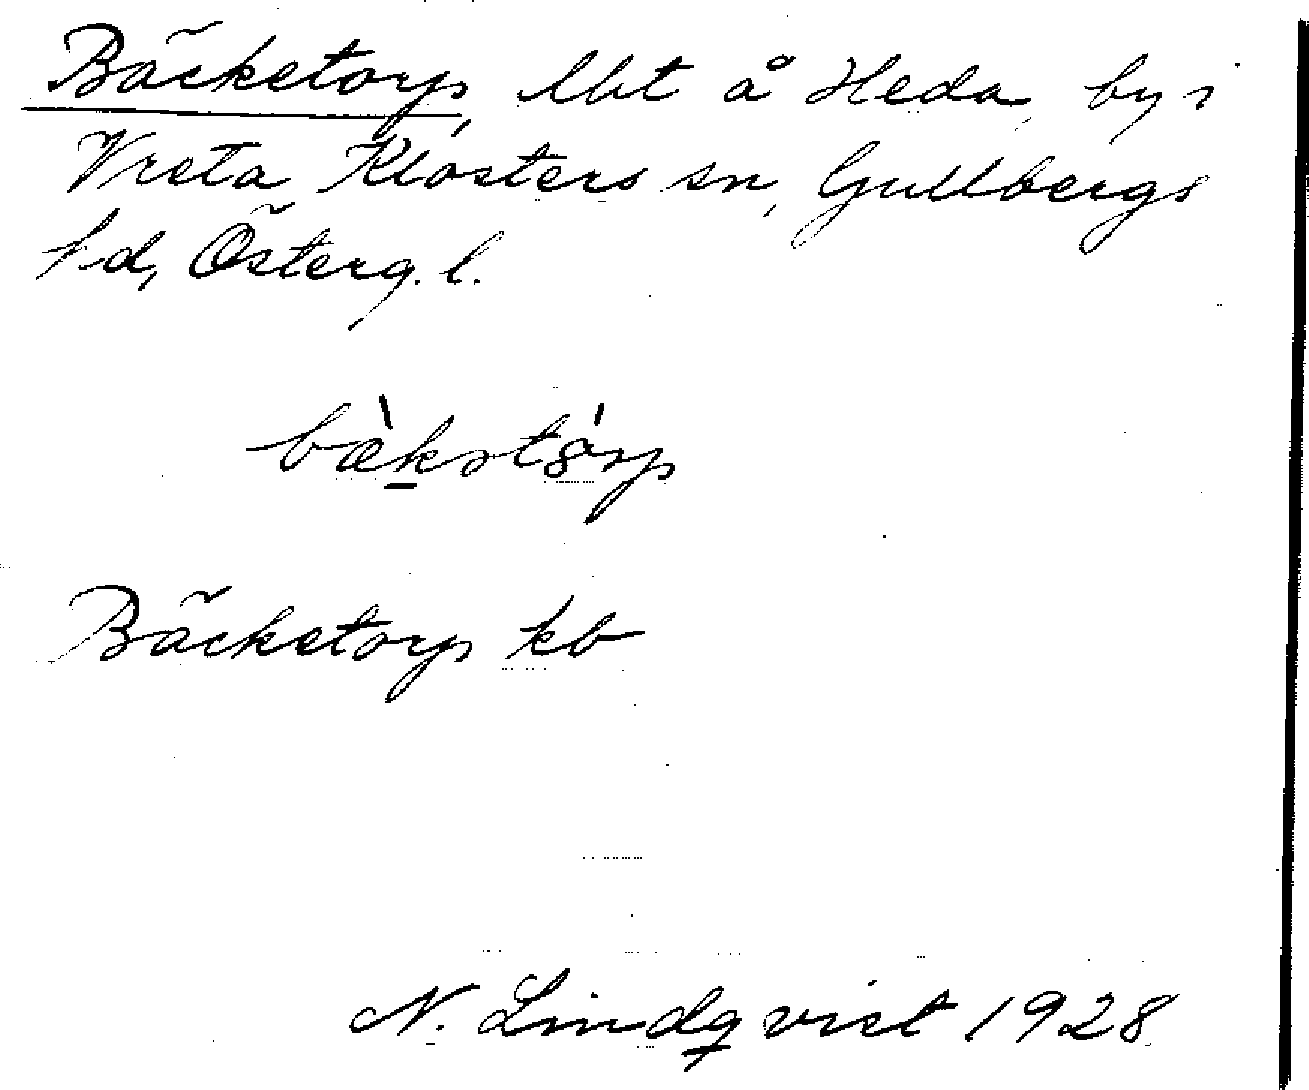 Bäckstorp, lht å Heda, by i
Vreta Klosters sn, Gullbergs
hd, Österg. l.
bæ̀kstȯ́rp
Bäckstorp kb
N. Lindqvist 1928